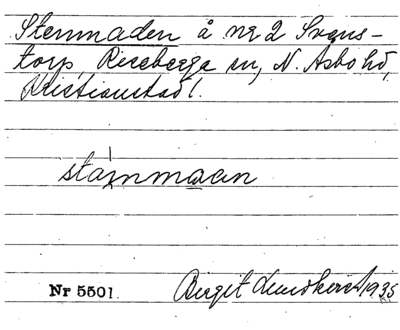 Stenmaden å nr 2 Svens-
torp, Riseberga sn, N. Åsbo hd,
Kristianstad l.
stainmaan
Nr 5501. Birgit Lundkvist 1935